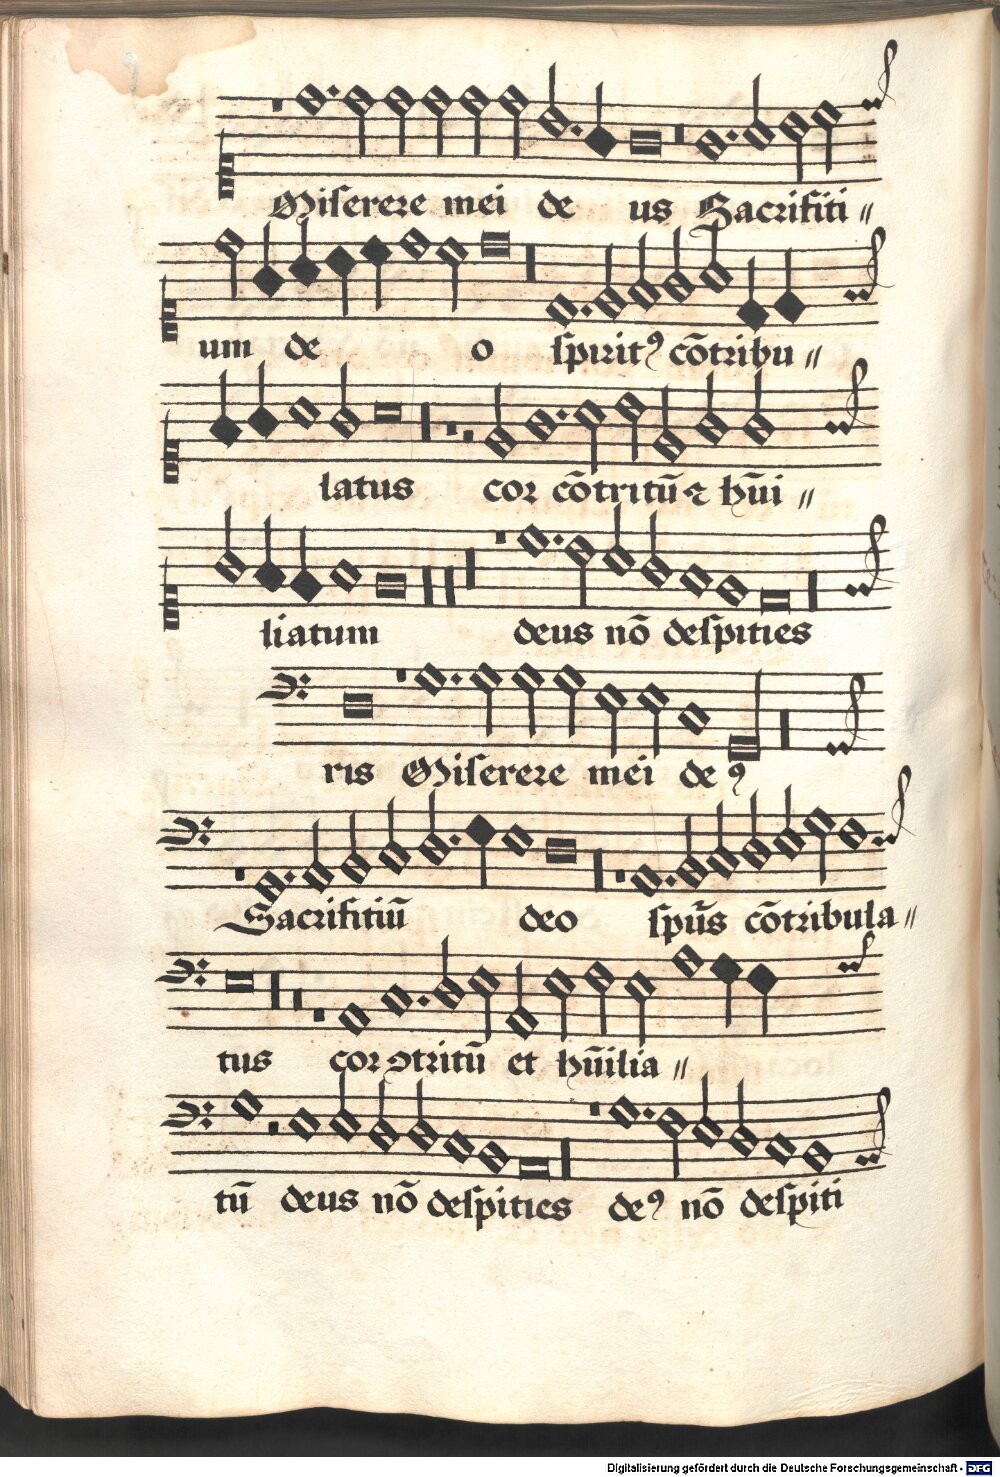 Miserere mei de us Sacrifiti〃
um de o spiritꝰ cõtribu〃
latus cor cõtritũ ⁊ hũi〃
liatum deus nõ despities
ris Miserere mei deꝰ
Sacrifitiũ deo spũs cõtribula〃
tus cor ꝯtritũ et hũilia〃
tũ deus nõ despities deꝰ nõ despiti
Digitalisierung gefördert durch die Deutsche Forschungsgemeinschaft - DFG